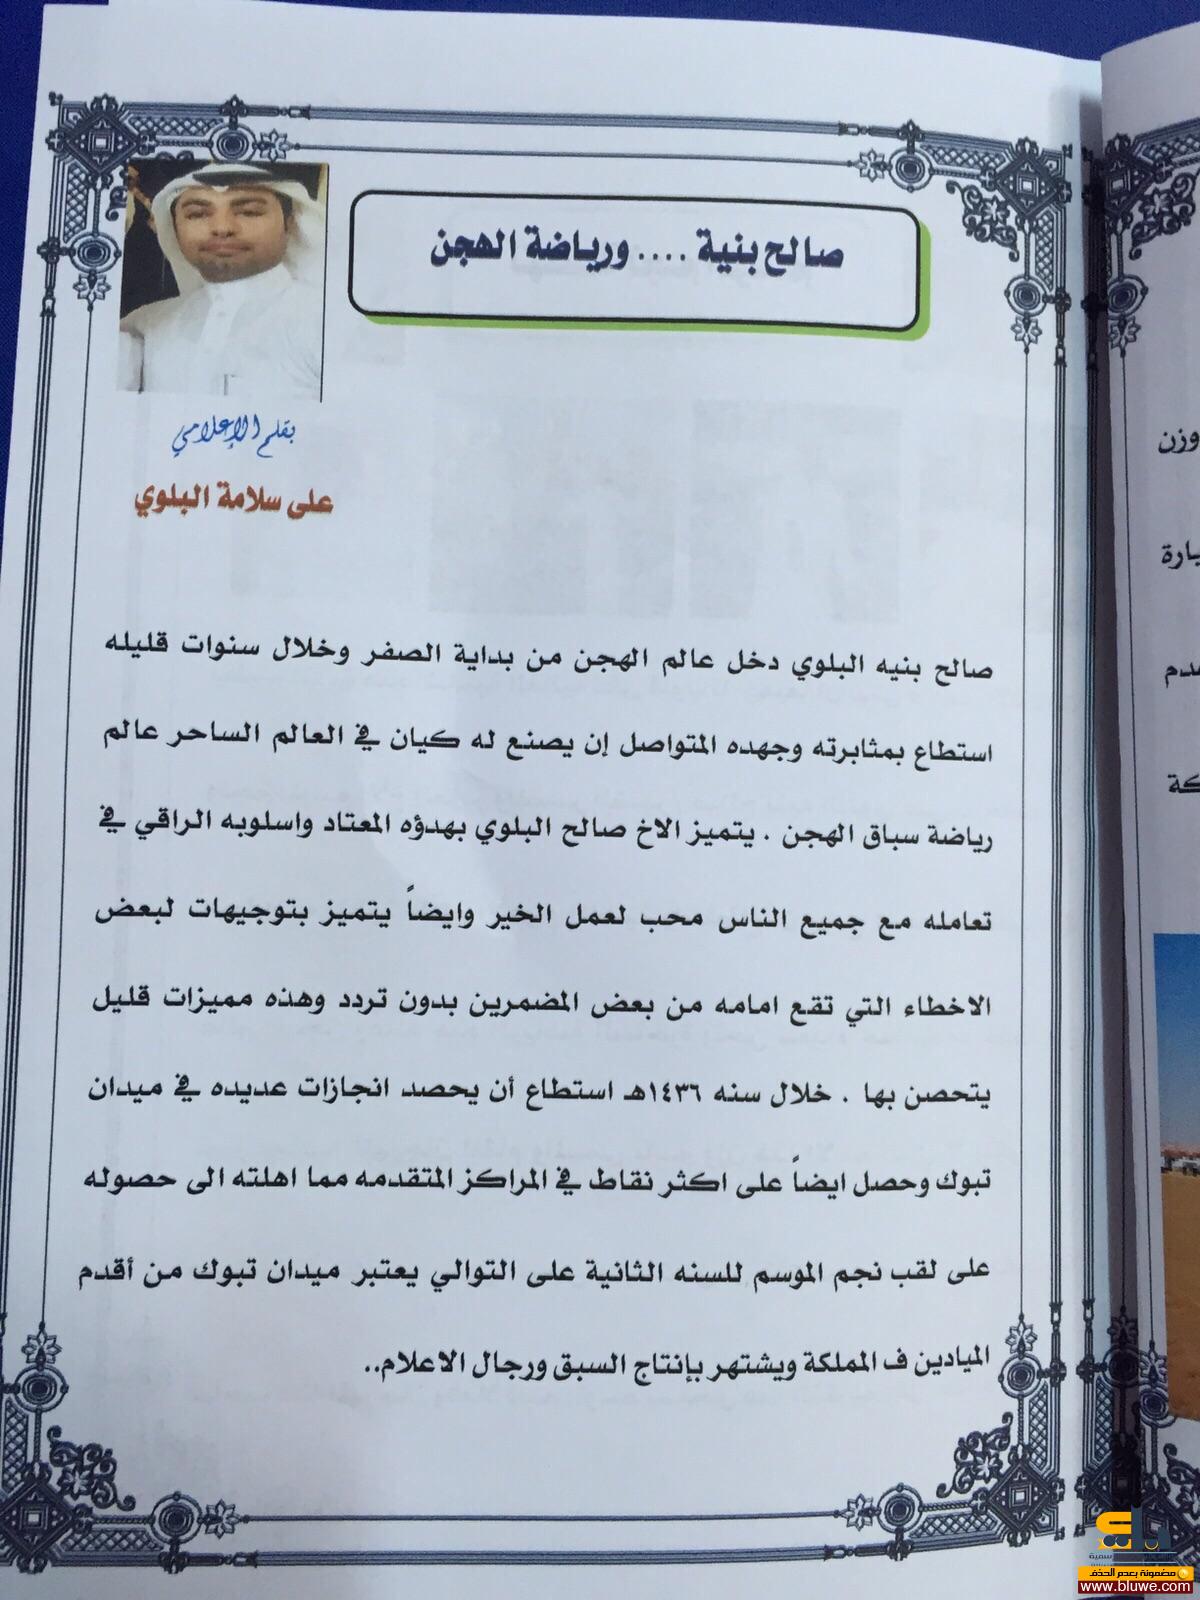 صالح بنية .... ورياضة الهجن
بقلم الإعلامي
على سلامة البلوي
صالح بنيه البلوي دخل عالم الهجن من بداية الصفر وخلال سنوات قليله
استطاع بمثابرته وجهده المتواصل إن يصنع له كيان في العالم الساحر عالم
رياضة سباق الهجن . يتميز الاخ صالح البلوي بهدؤه المعتاد واسلوبه الراقي في
تعامله مع جميع الناس محب لعمل الخير وايضاً يتميز بتوجيهات لبعض
الاخطاء التي تقع امامه من بعض المضمرين بدون تردد وهذه مميزات قليل
يتحصن بها . خلال سنه ١٤٣٦هـ استطاع أن يحصد انجازات عديده في ميدان
تبوك وحصل ايضاً على اكثر نقاط في المراكز المتقدمه مما اهلته الى حصوله
على لقب نجم الموسم للسنه الثانية على التوالي يعتبر ميدان تبوك من أقدم
الميادين ف المملكة ويشتهر بإنتاج السبق ورجال الاعلام..
وزن
مضمونة بعدم الحذف
www.bluwe.com